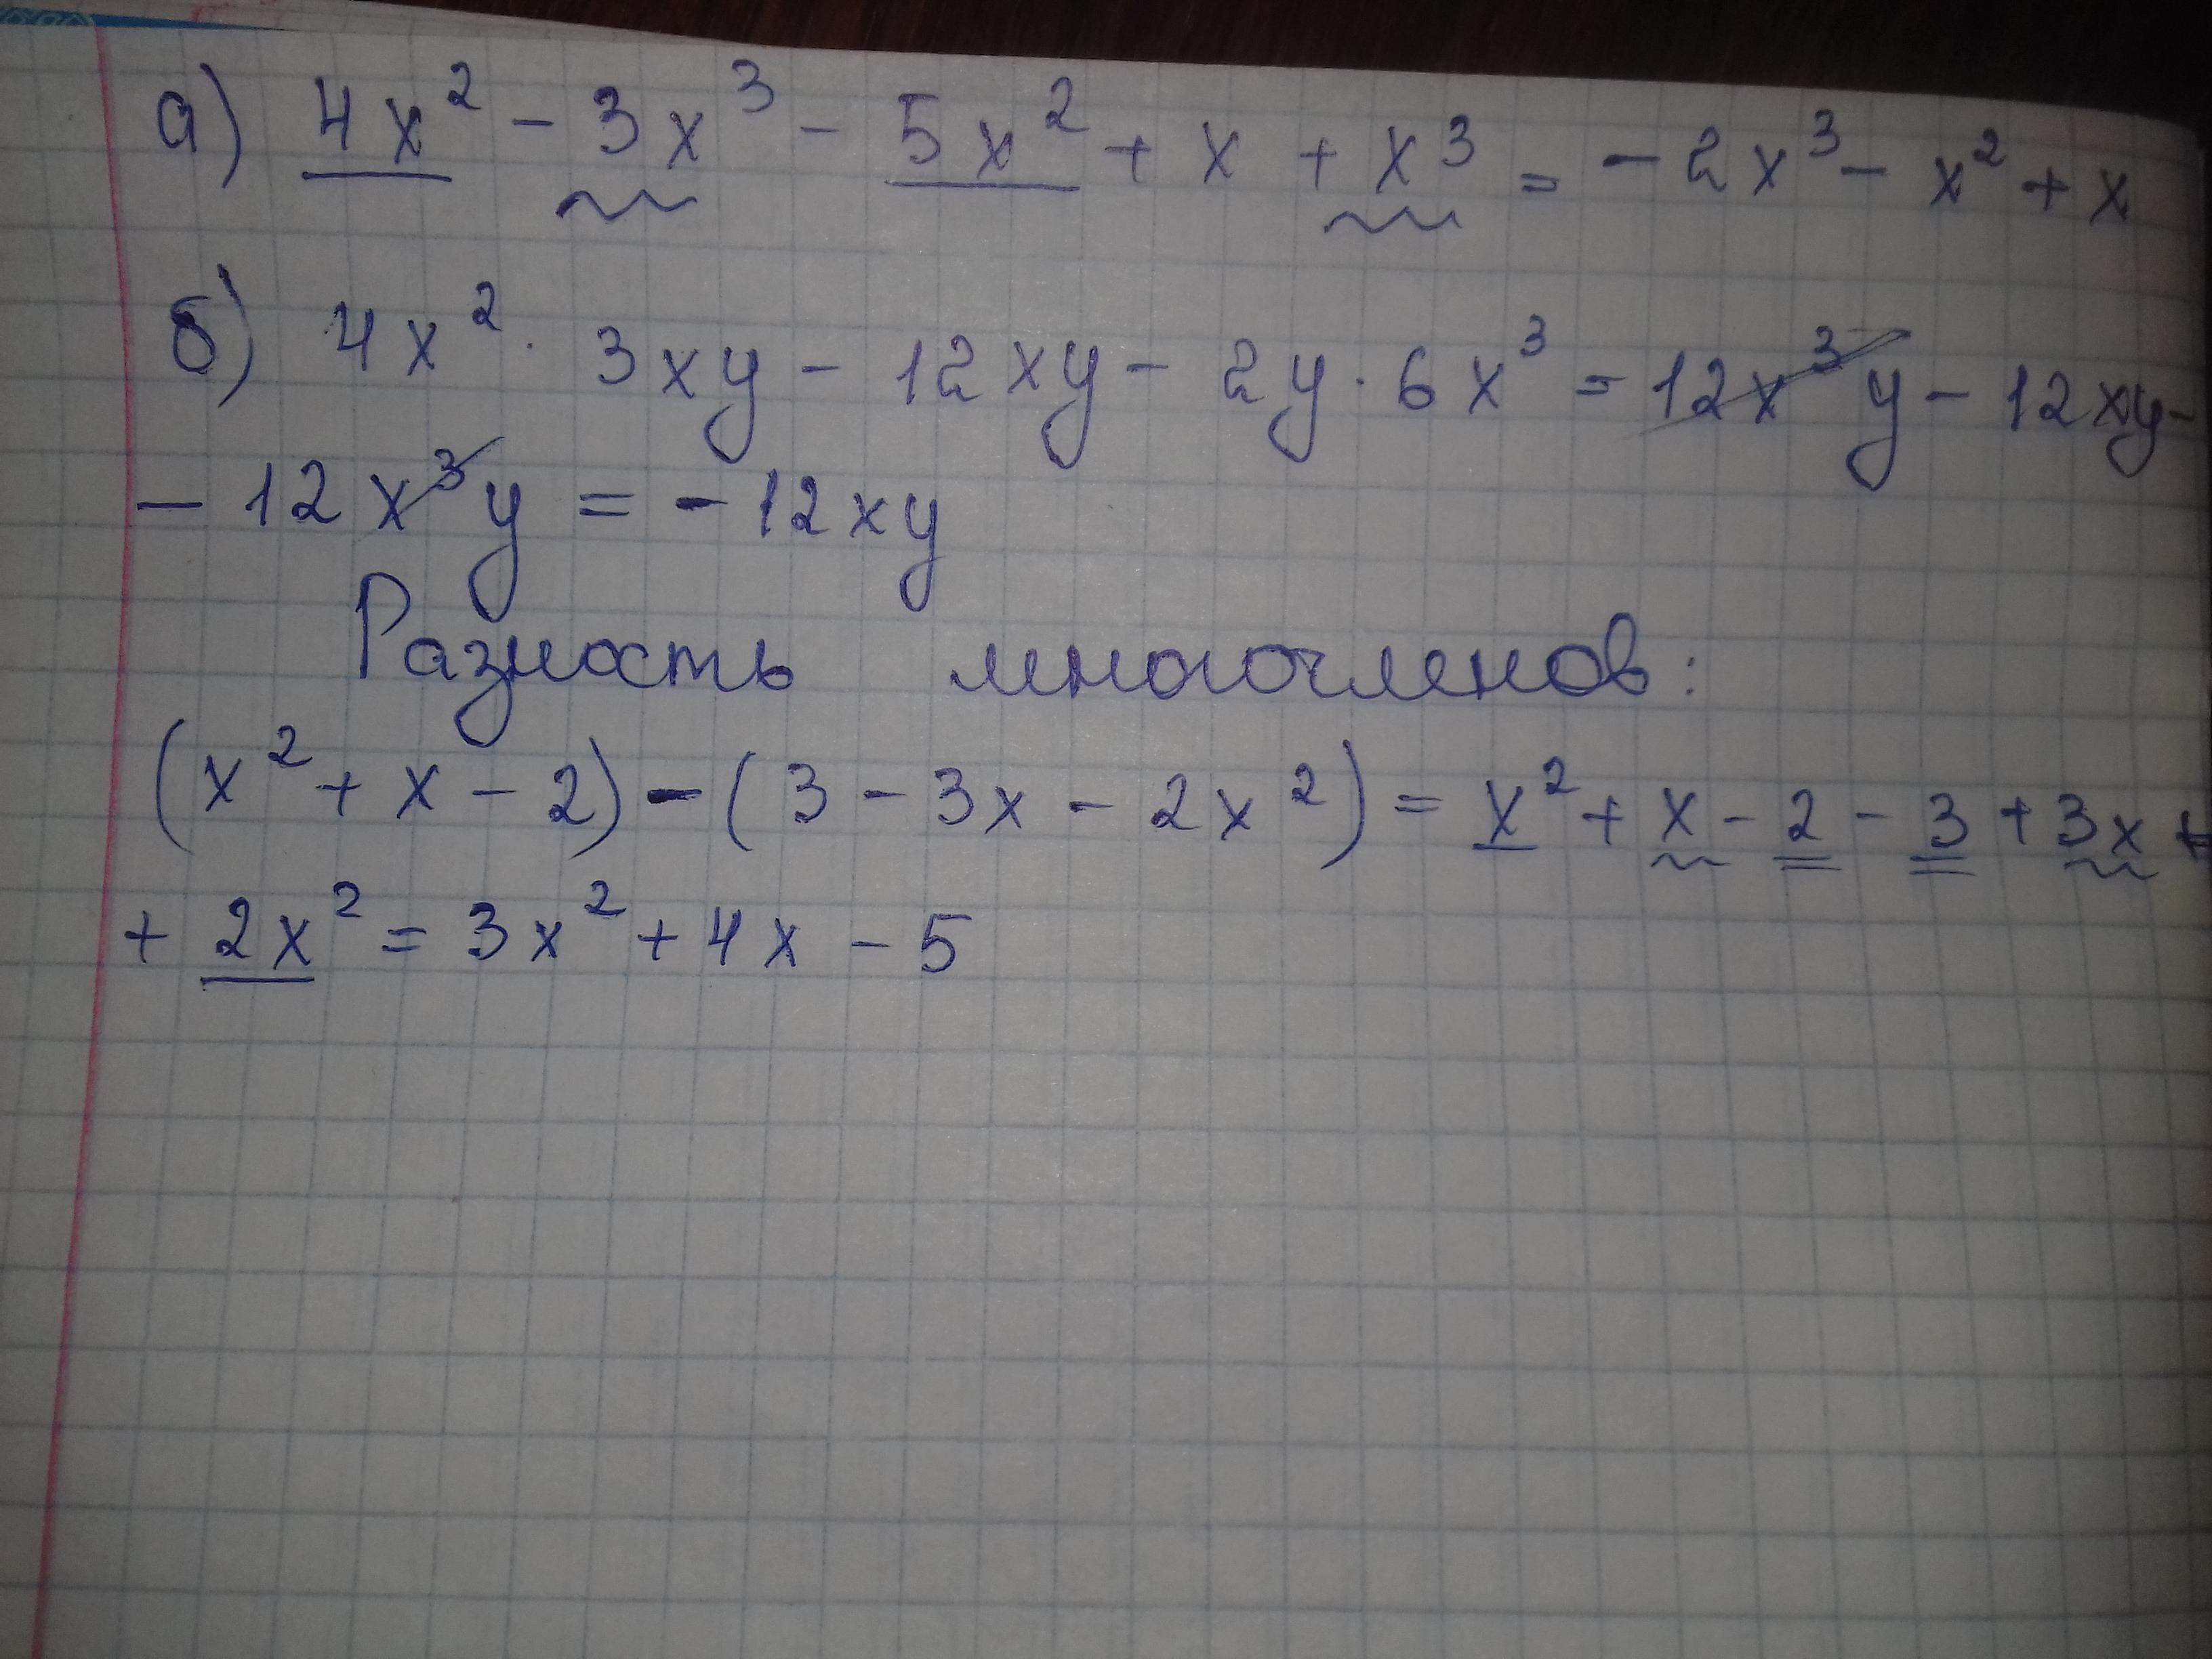 а) 4x² - 3x³ - 5x² + x + x³ = - 2x³ - x² + x
б) 4x² · 3xy - 12xy - 2y · 6x³ = 12x³y - 12xy -
- 12x³y = - 12xy
Разность многочленов:
(x² + x - 2) - (3 - 3x - 2x²) = x² + x - 2 - 3 + 3x +
+ 2x² = 3x² + 4x - 5